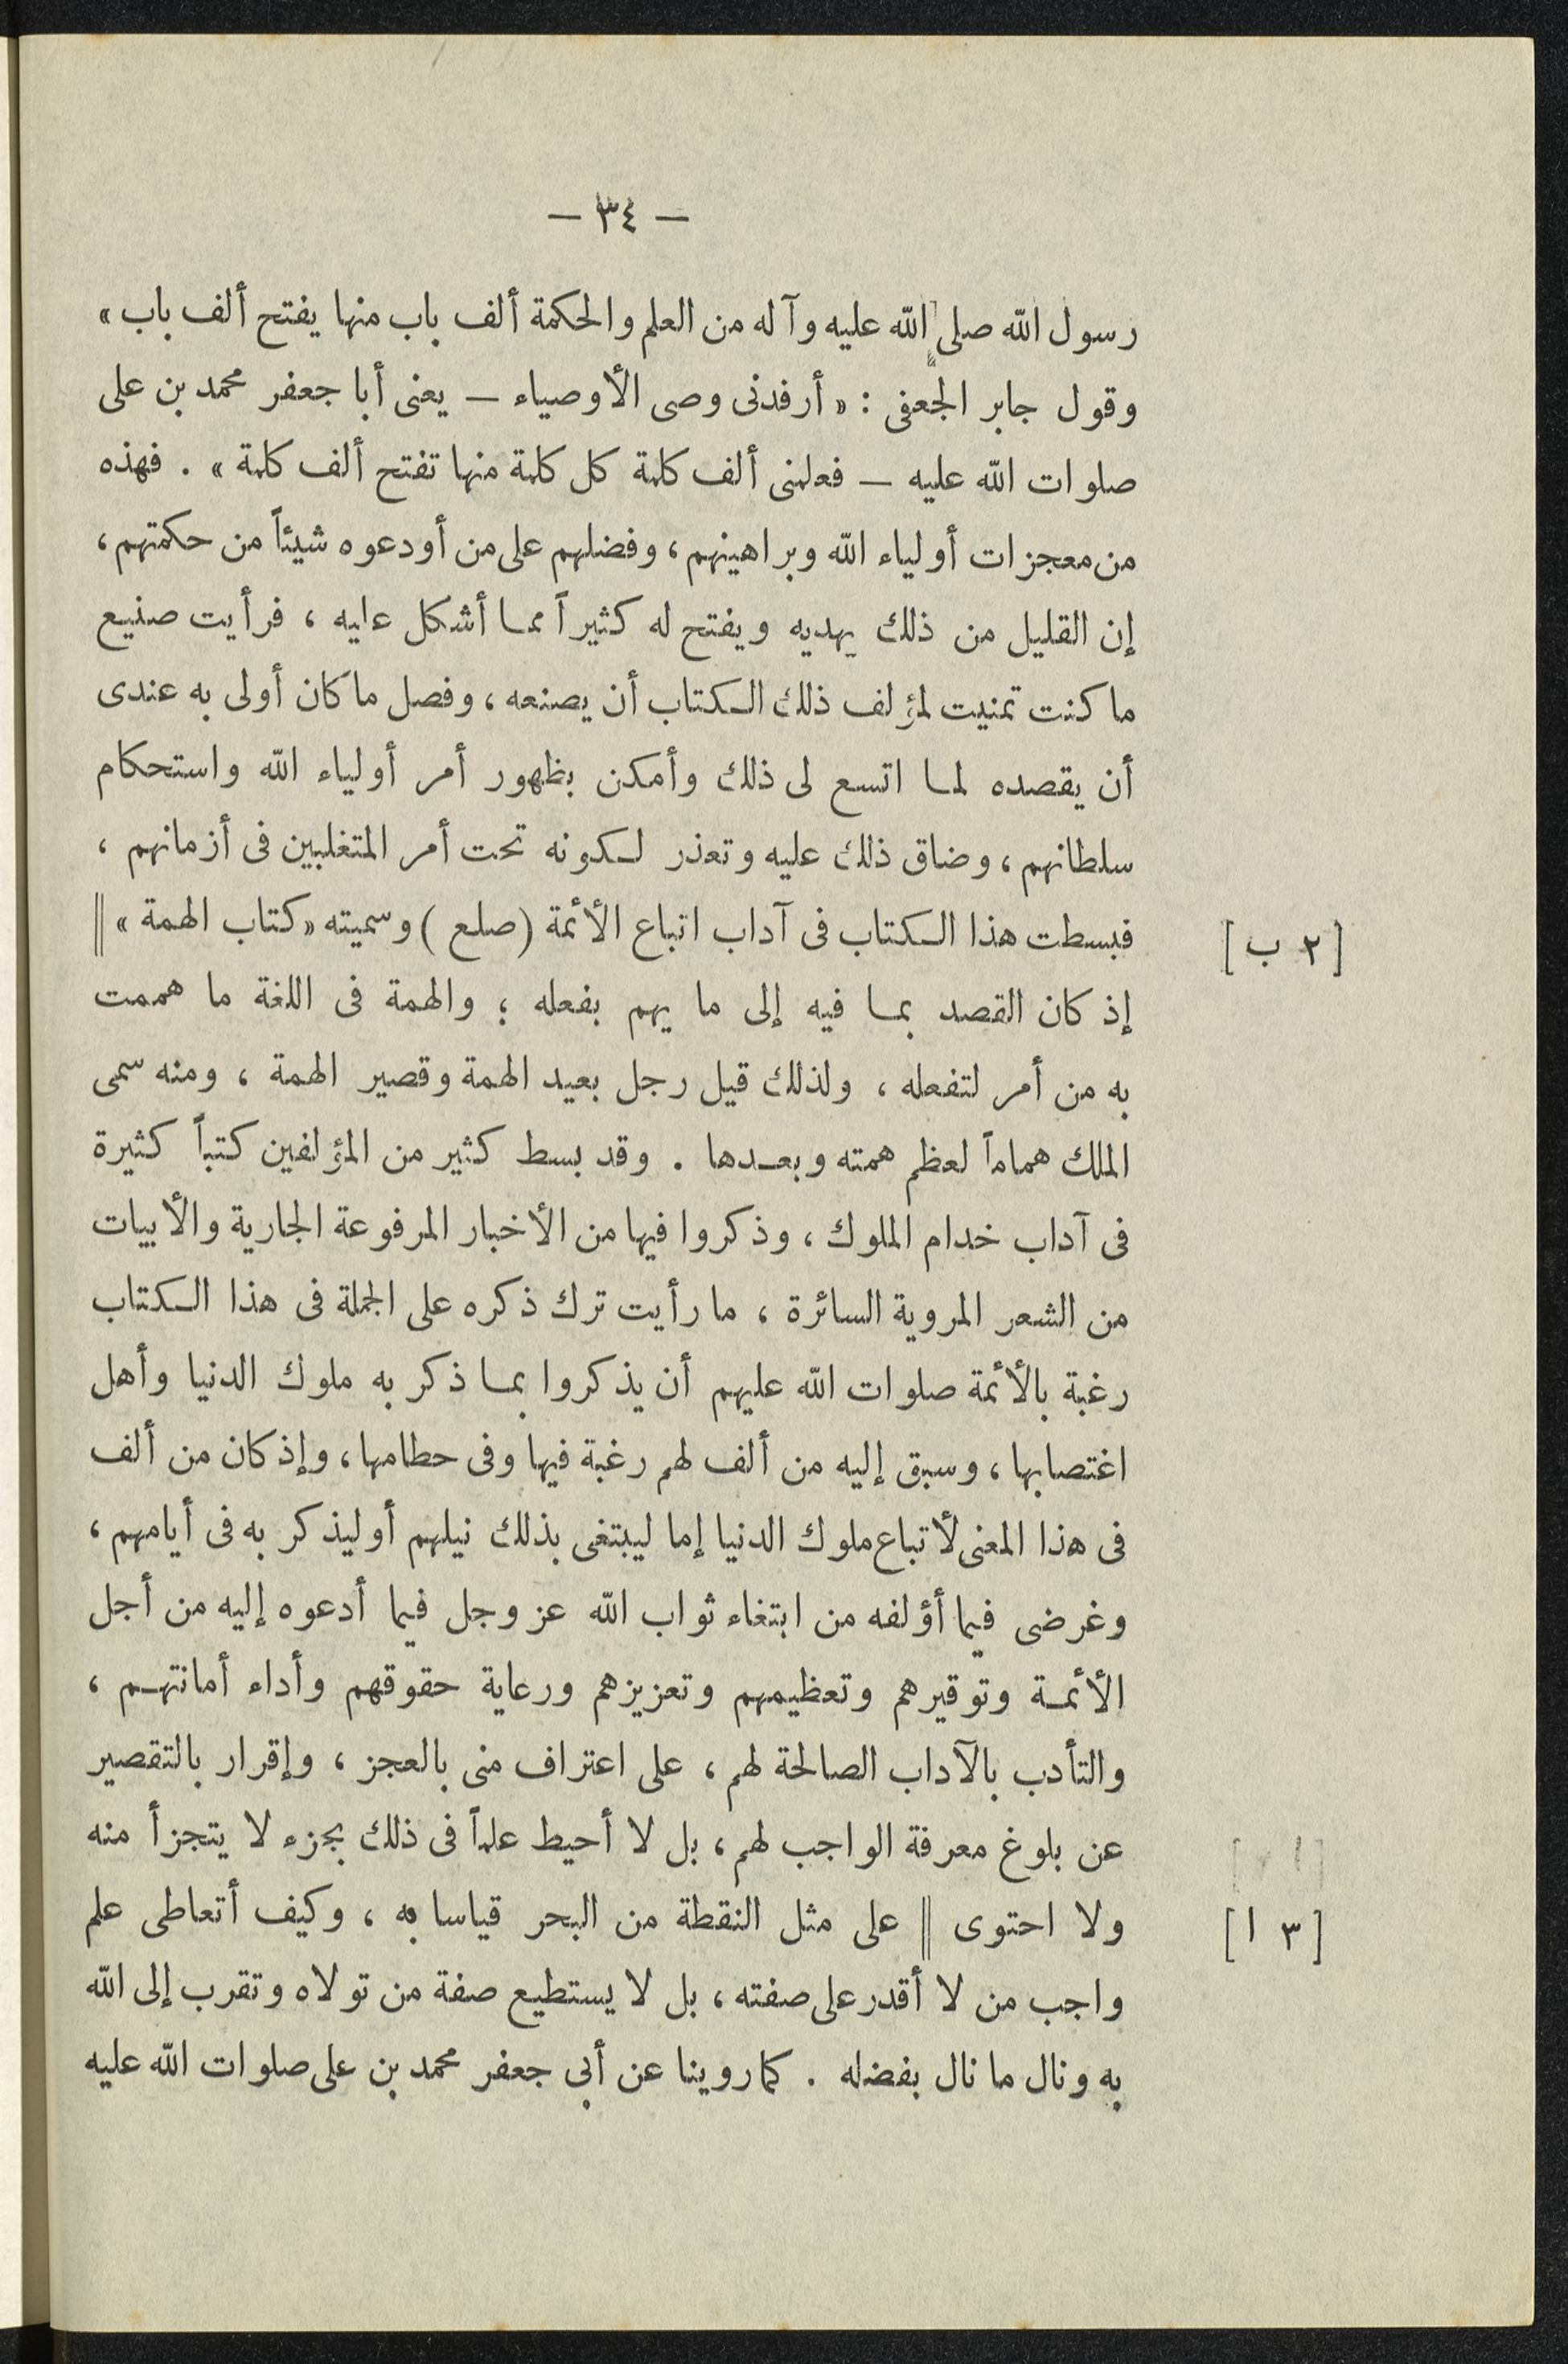 — ٣٤ —
رسول الله صلى الله عليه وآله من العلم والحكمة ألف باب منها يفتح ألف باب »
وقول جابر الجعفى : « أرفدنى وصى الأوصياء — يعنى أبا جعفر محمد بن على
صلوات الله عليه — فعلمنى ألف كلمة كل كلمة منها تفتح ألف كلمة » . فهذه
من معجزات أولياء الله وبراهينهم ، وفضلهم على من أودعوه شيئاً من حكمتهم ،
إن القليل من ذلك يهديه ويفتح له كثيراً مما أشكل عليه ، فرأيت صنيع
ما كنت تمنيت لمؤلف ذلك الكتاب أن يصنعه ، وفصل ما كان أولى به عندى
أن يقصده لما اتسع لى ذلك وأمكن بظهور أمر أولياء الله واستحكام
سلطانهم ، وضاق ذلك عليه وتعذر لكونه تحت أمر المتغلبين فى أزمانهم ،
[ ٢ ب ] فبسطت هذا الكتاب فى آداب اتباع الأئمة ( صلع ) وسميته « كتاب الهمة » ||
إذ كان القصد بما فيه إلى ما يهم بفعله ؛ والهمة فى اللغة ما هممت
به من أمر لتفعله ، ولذلك قيل رجل بعيد الهمة وقصير الهمة ، ومنه سمى
الملك هماماً لعظم همته وبعدها . وقد بسط كثير من المؤلفين كتباً كثيرة
فى آداب خدام الملوك ، وذكروا فيها من الأخبار المرفوعة الجارية والأبيات
من الشعر المروية السائرة ، ما رأيت ترك ذكره على الجملة فى هذا الكتاب
رغبة بالأئمة صلوات الله عليهم أن يذكروا بما ذكر به ملوك الدنيا وأهل
اغتصابها ، وسبق إليه من ألف لهم رغبة فيها وفى حطامها ، وإذ كان من ألف
فى هذا المعنى لأتباع ملوك الدنيا إما ليبتغى بذلك نيلهم أو ليذكر به فى أيامهم ،
وغرضى فيما أؤلفه من ابتغاء ثواب الله عز وجل فيما أدعوه إليه من أجل
الأئمة وتوقيرهم وتعظيمهم وتعزيزهم ورعاية حقوقهم وأداء أمانتهم ،
والتأدب بالآداب الصالحة لهم ، على اعتراف منى بالعجز ، وإقرار بالتقصير
عن بلوغ معرفة الواجب لهم ، بل لا أحيط علماً فى ذلك بجزء لا يتجزأ منه
[ ٣ ا ] ولا احتوى || على مثل النقطة من البحر قياسا به ، وكيف أتعاطى علم
واجب من لا أقدر على صفته ، بل لا يستطيع صفة من تولاه وتقرب إلى الله
به ونال ما نال بفضله . كما روينا عن أبى جعفر محمد بن على صلوات الله عليه